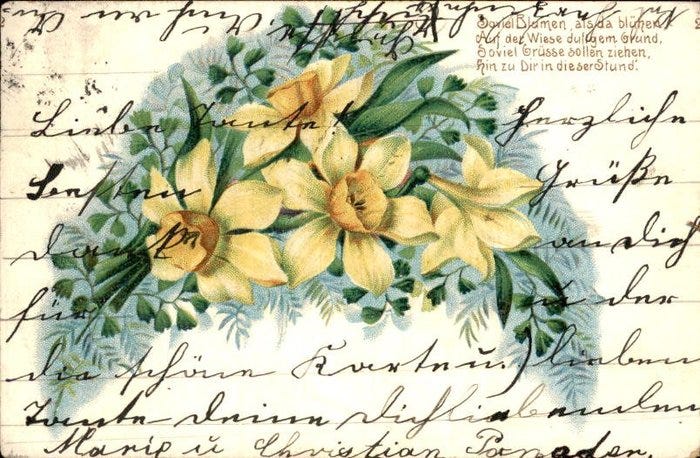 Soviel Blumen, als da blühen
Auf der Wiese duft'gem Grund,
Soviel Grüsse sollen ziehen,
Hin zu Dir in dieser Stund'.
Liebe Tante! Herzliche
Besten Grüße
Dank an Dich
für u der
die schöne Karten u. lieben
Tante deine Dichliebenden
Marie u Christian